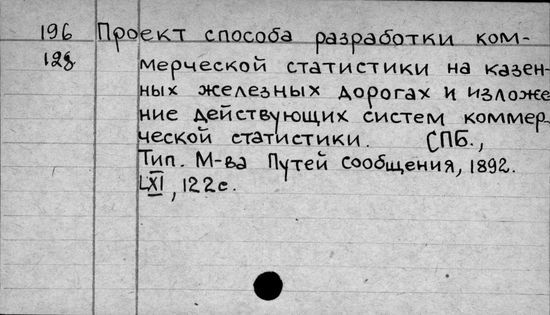 196 Проект способа разработки ком-
128 мерческой статистики на казен-
ных железных дорогах и изложе
ние действующих систем коммер
ческой статистики. СПБ.,
Тип. М-ва Путей Сообщения, 1892.
LXI, 122с.